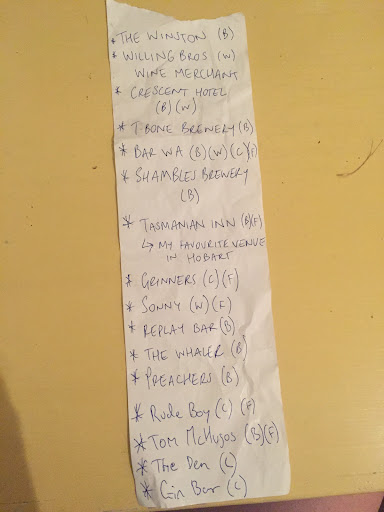 * THE WINSTON (B)
* WILLING BROS (W)
WINE MERCHANT
* CRESCENT HOTEL
(B)(W)
* T-BONE BREWERY (B)
* BAR WA (B)(W)(C)(F)
* SHAMBLES BREWERY
(B)
* TASMANIAN INN (B)(F)
↳ MY FAVOURITE VENUE
IN HOBART
* GRINNERS (C)(F)
* SONNY (W)(F)
* REPLAY BAR (B)
* THE WHALER (B)
* PREACHERS (B)
* Rude Boy (C) (F)
* TOM McHugos (B)(F)
* The Den (C)
* Gin Bar (C)